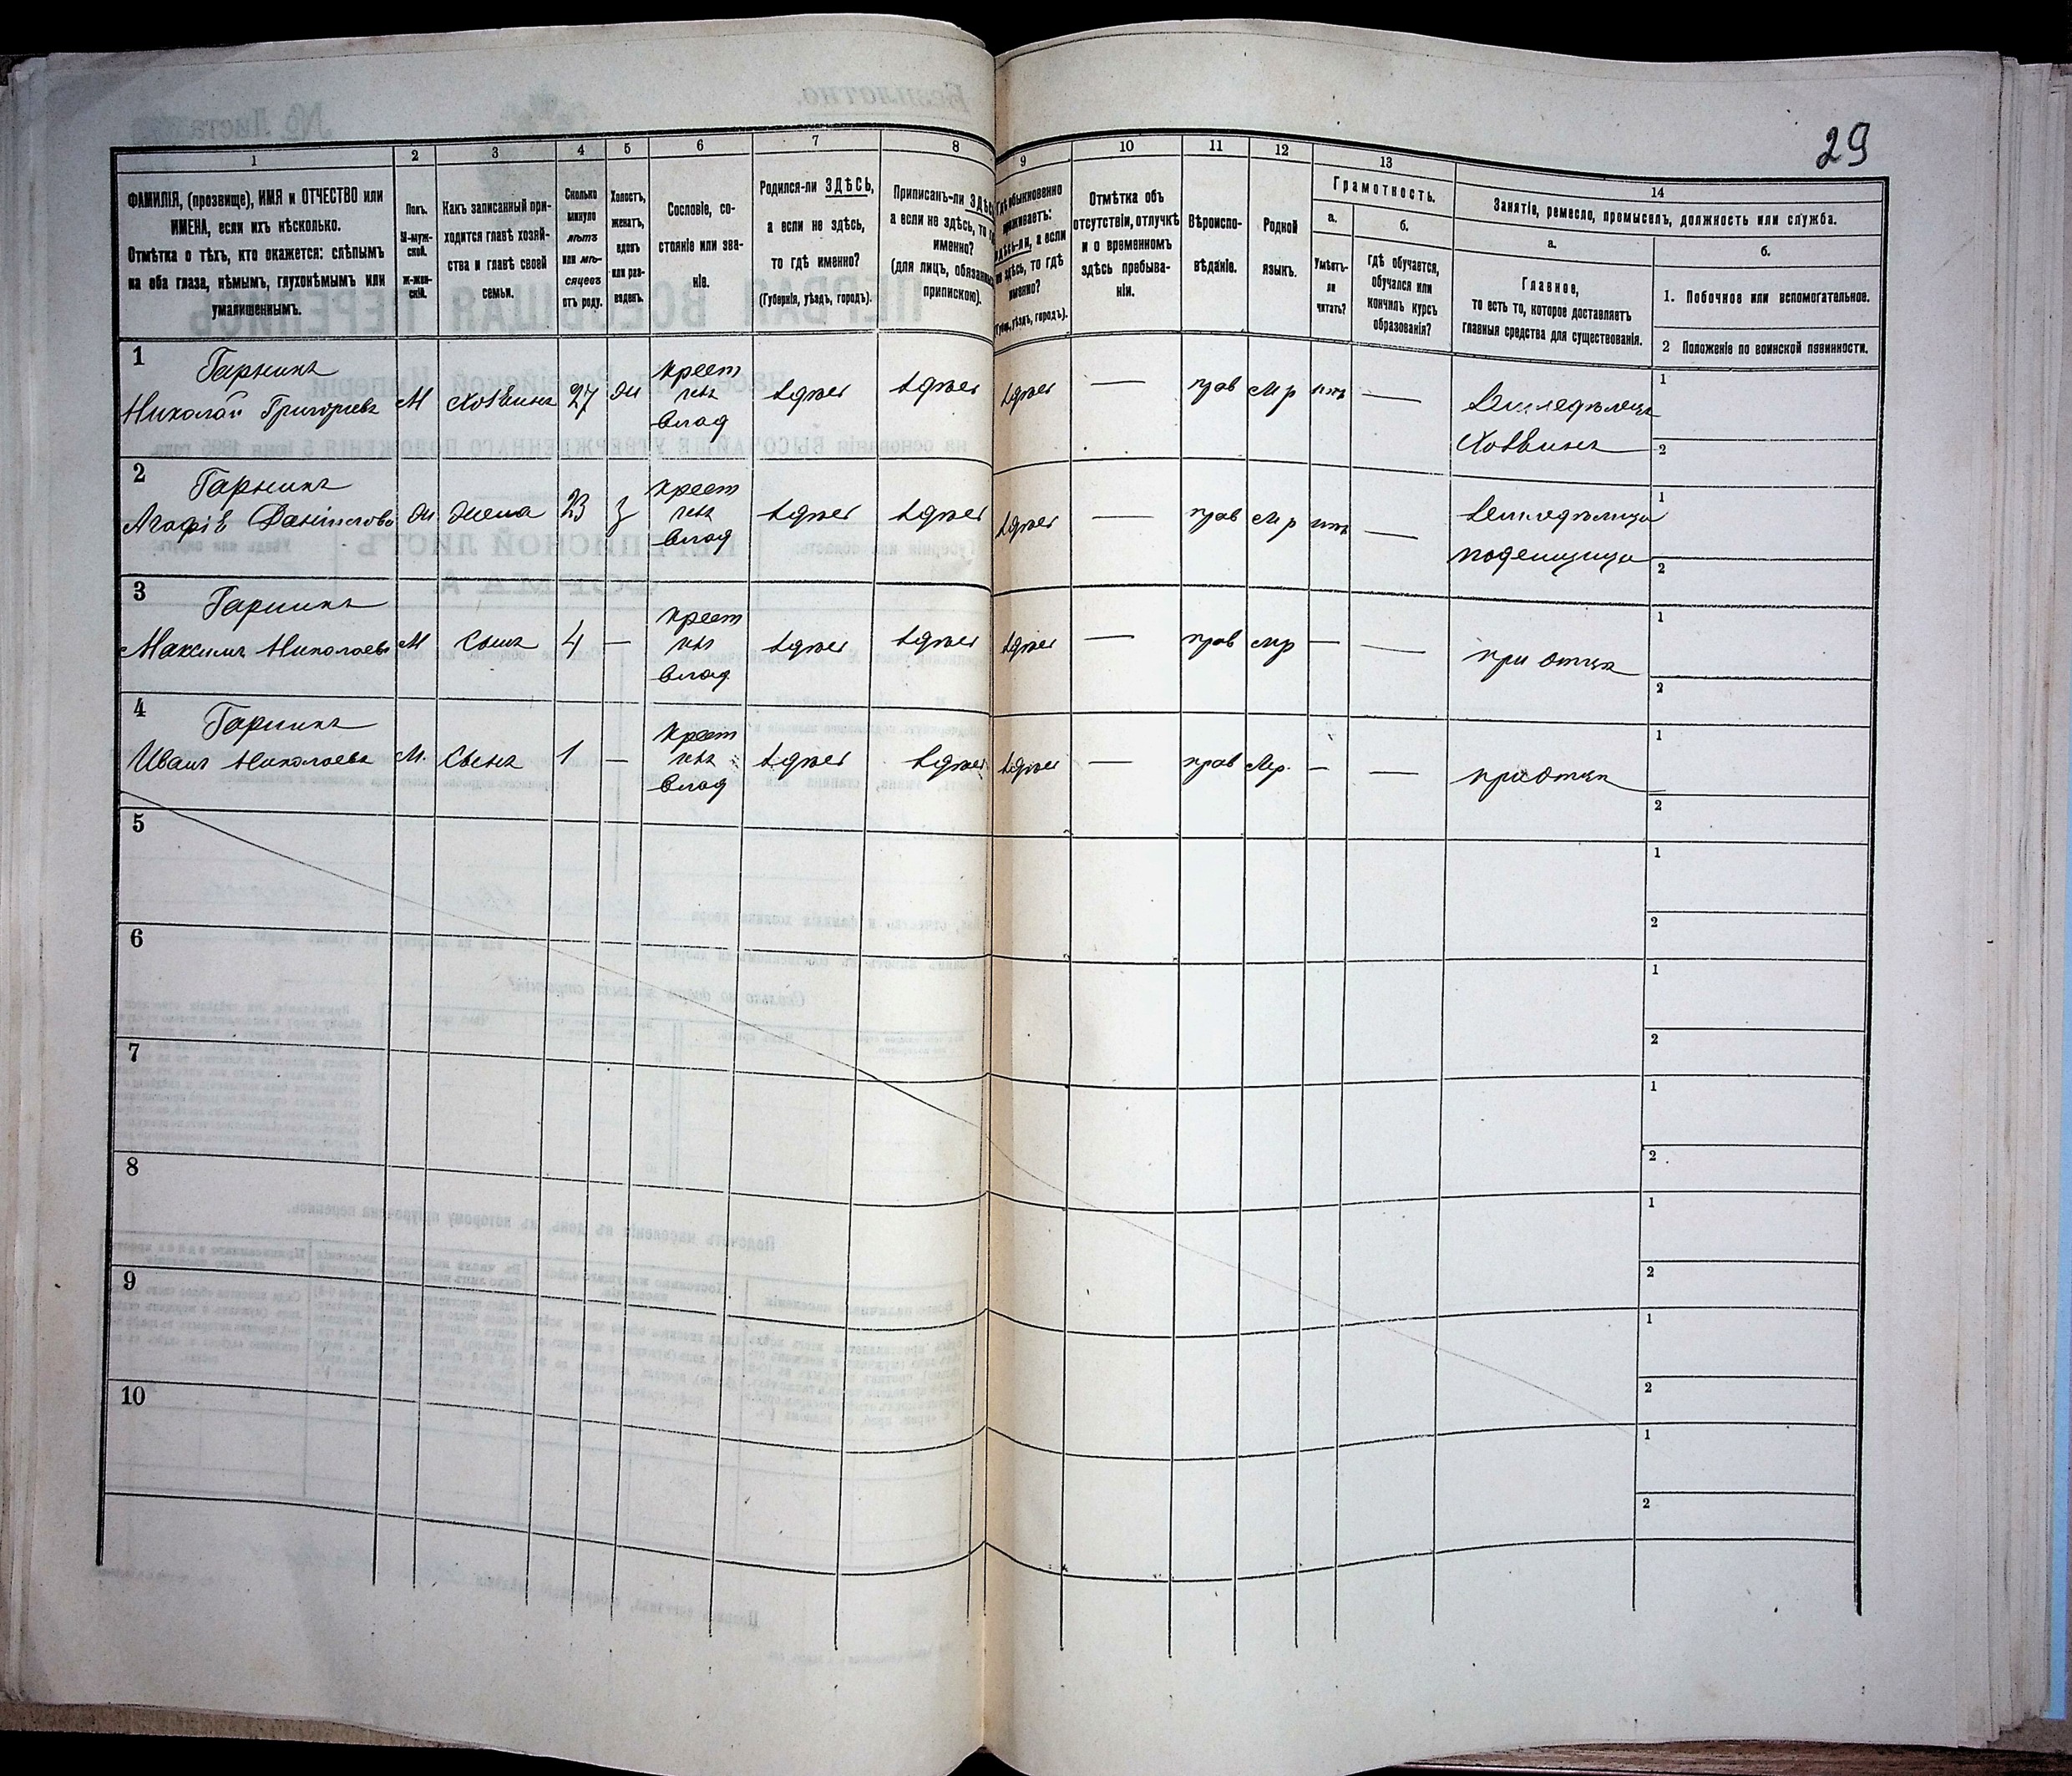 29
1 2 3 4 5 6 7 8 9 10 11 12 13 14
ФАМИЛІЯ, (прозвище), ИМЯ и ОТЧЕСТВО или
ИМЕНА, если ихъ нѣсколько.
Отмѣтка о тѣхъ, кто окажется: слѣпымъ
на оба глаза, нѣмымъ, глухонѣмымъ или
умалишеннымъ.
Полъ.
М-муж-
ской.
Ж-жен-
скій.
Какъ записанный при-
ходится главѣ хозяй-
ства и главѣ своей
семьи.
Сколько
минуло
лѣтъ
или мѣ-
сяцевъ
отъ роду.
Холостъ,
женатъ,
вдовъ
или раз-
веденъ.
Сословіе, со-
стояніе или зва-
ніе.
Родился-ли ЗДѢСЬ,
а если не здѣсь,
то гдѣ именно?
(Губернія, уѣздъ, городъ).
Приписанъ-ли ЗДѢСЬ
а если не здѣсь, то
именно?
(для лицъ, обязанныхъ
припискою).
обыкновенно
проживаетъ:
здѣсь-ли, а если
не здѣсь, то гдѣ
именно?
уѣздъ, городъ).
Отмѣтка объ
отсутствіи, отлучкѣ
и о временномъ
здѣсь пребыва-
ніи.
Вѣроиспо-
вѣданіе.
Родной
языкъ.
Грамотность.
а.
Умѣетъ-
ли
читать?
б.
гдѣ обучается,
обучался или
кончилъ курсъ
образованія?
Занятіе, ремесло, промыселъ, должность или служба.
а.
Главное,
то есть то, которое доставляетъ
главныя средства для существованія.
б.
1. Побочное или вспомогательное.
2 Положеніе по воинской повинности.
1 Гарникъ
Николай Григорьевъ М Хозяинъ 27 ж крест влад здѣсь здѣсь здѣсь — прав нѣтъ — Земледѣлецъ
Хозяинъ
1
2
2 Гарникъ
Агафія Даніилова ж жена 23 з крест влад здѣсь здѣсь здѣсь — прав нѣтъ —
поденщица
1
2
3 Гарникъ
Максимъ Николаевъ М Сынъ 4 — крест влад здѣсь здѣсь здѣсь — прав — — при отцѣ
1
2
4 Гарникъ
Иванъ Николаевъ М. Сынъ 1 — крест влад здѣсь здѣсь здѣсь — прав — — при отцѣ
1
2
5
1
2
6
1
2
7
1
2
8
1
2
9
1
2
10
1
2